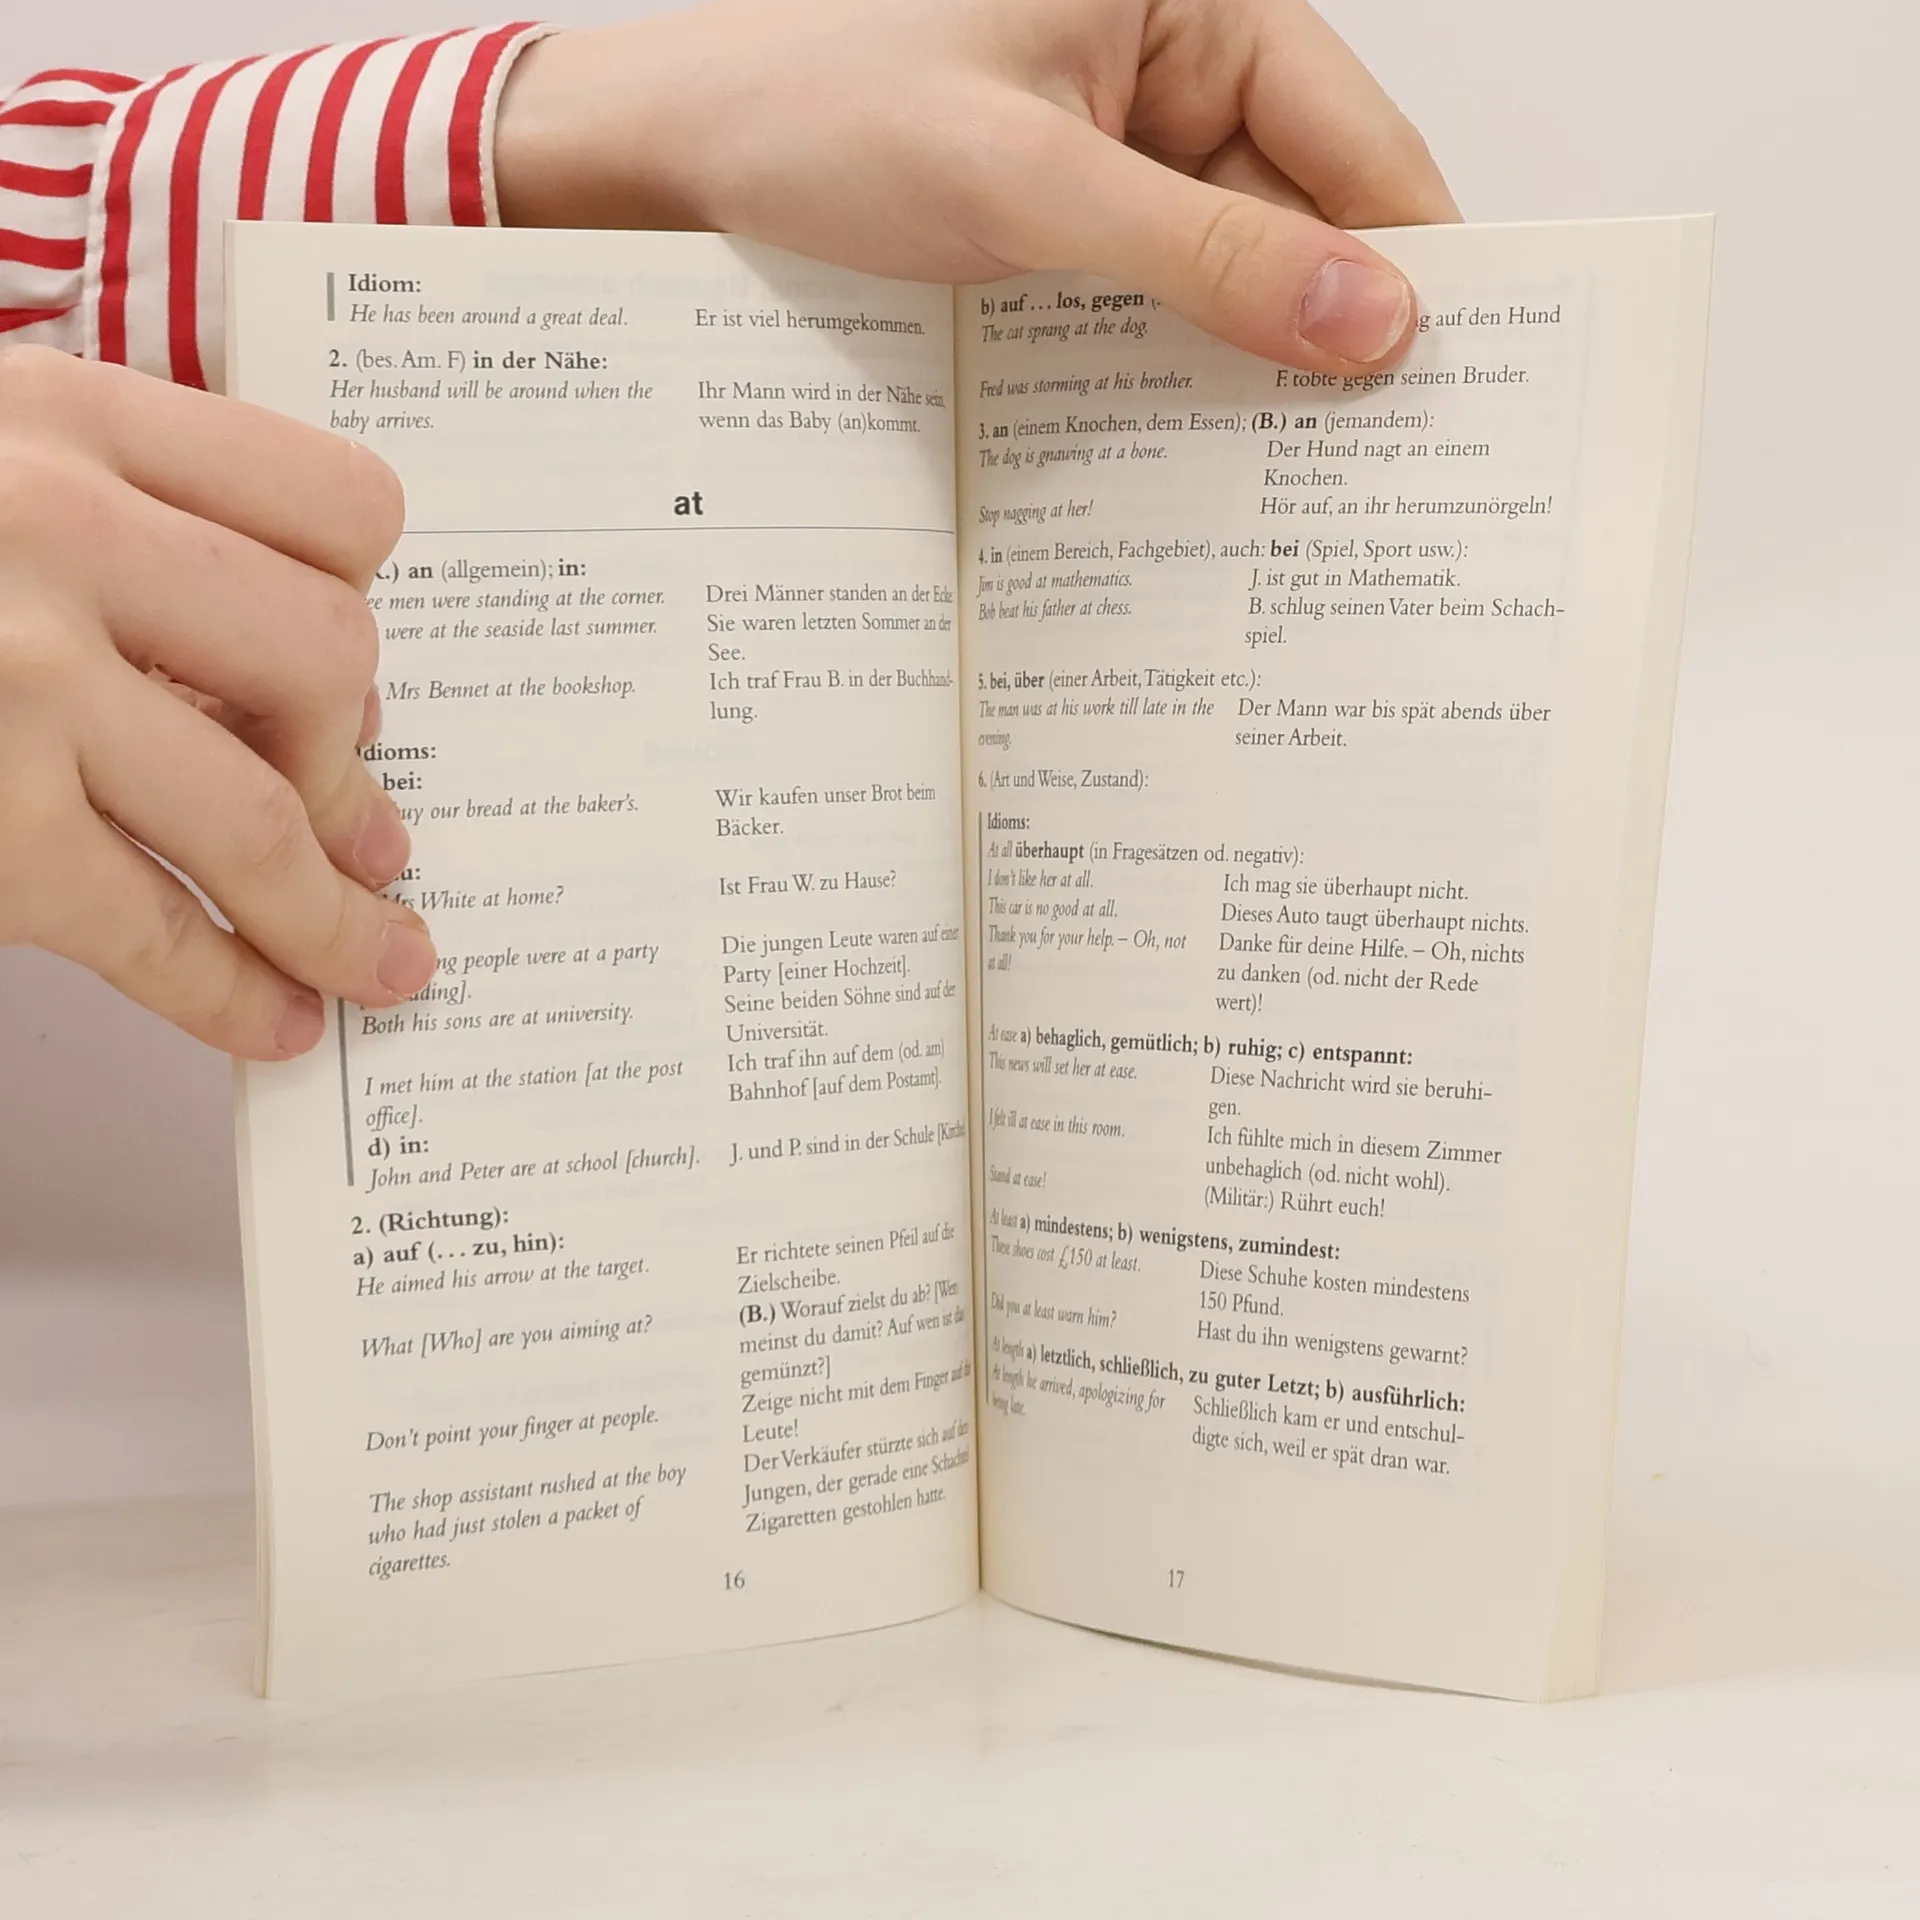 Idiom:
He has been around a great deal. Er ist viel herumgekommen.
2. (bes. Am. F) in der Nähe:
Her husband will be around when the Ihr Mann wird in der Nähe sein,
baby arrives. wenn das Baby (an)kommt.
at
an (allgemein); in:
men were standing at the corner. Drei Männer standen an der Ecke
were at the seaside last summer. Sie waren letzten Sommer an der
See.
Mrs Bennet at the bookshop. Ich traf Frau B. in der Buchhand-
lung.
dioms:
bei:
our bread at the baker's. Wir kaufen unser Brot beim
Bäcker.
White at home? Ist Frau W. zu Hause?
people were at a party Die jungen Leute waren auf einer
Party [einer Hochzeit].
Both his sons are at university. Seine beiden Söhne sind auf der
Universität.
I met him at the station [at the post Ich traf ihn auf dem (od. am)
office]. Bahnhof [auf dem Postamt].
d) in:
John and Peter are at school [church]. J. und P. sind in der Schule
2. (Richtung):
a) auf (... zu, hin):
He aimed his arrow at the target. Er richtete seinen Pfeil auf die
Zielscheibe.
What [Who] are you aiming at? (B.) Worauf zielst du ab? [Wen
meinst du damit? Auf wen ist das
gemünzt?]
Don't point your finger at people. Zeige nicht mit dem Finger auf
Leute!
The shop assistant rushed at the boy Der Verkäufer stürzte sich auf den
who had just stolen a packet of Jungen, der gerade eine Schachtel
cigarettes. Zigaretten gestohlen hatte.
16
b) auf ... los, gegen
The cat sprang at the dog. auf den Hund
Fred was storming at his brother. F. tobte gegen seinen Bruder.
3. an (einem Knochen, dem Essen); (B.) an (jemandem):
The dog is gnawing at a bone. Der Hund nagt an einem
Knochen.
Stop nagging at her! Hör auf, an ihr herumzunörgeln!
4. in (einem Bereich, Fachgebiet), auch: bei (Spiel, Sport usw.):
Jim is good at mathematics. J. ist gut in Mathematik.
Bob beat his father at chess. B. schlug seinen Vater beim Schach-
spiel.
5. bei, über (einer Arbeit, Tätigkeit etc.):
The man was at his work till late in the Der Mann war bis spät abends über
evening. seiner Arbeit.
6. (Art und Weise, Zustand):
Idioms:
At all überhaupt (in Fragesätzen od. negativ):
I don't like her at all. Ich mag sie überhaupt nicht.
This car is no good at all. Dieses Auto taugt überhaupt nichts.
Thank you for your help. – Oh, not Danke für deine Hilfe. – Oh, nichts
at all! zu danken (od. nicht der Rede
wert)!
At ease a) behaglich, gemütlich; b) ruhig; c) entspannt:
This news will set her at ease. Diese Nachricht wird sie beruhi-
gen.
I felt ill at ease in this room. Ich fühlte mich in diesem Zimmer
unbehaglich (od. nicht wohl).
Stand at ease! (Militär:) Rührt euch!
At least a) mindestens; b) wenigstens, zumindest:
These shoes cost £150 at least. Diese Schuhe kosten mindestens
150 Pfund.
Did you at least warn him? Hast du ihn wenigstens gewarnt?
At length a) letztlich, schließlich, zu guter Letzt; b) ausführlich:
At length he arrived, apologizing for Schließlich kam er und entschul-
being late. digte sich, weil er spät dran war.
17